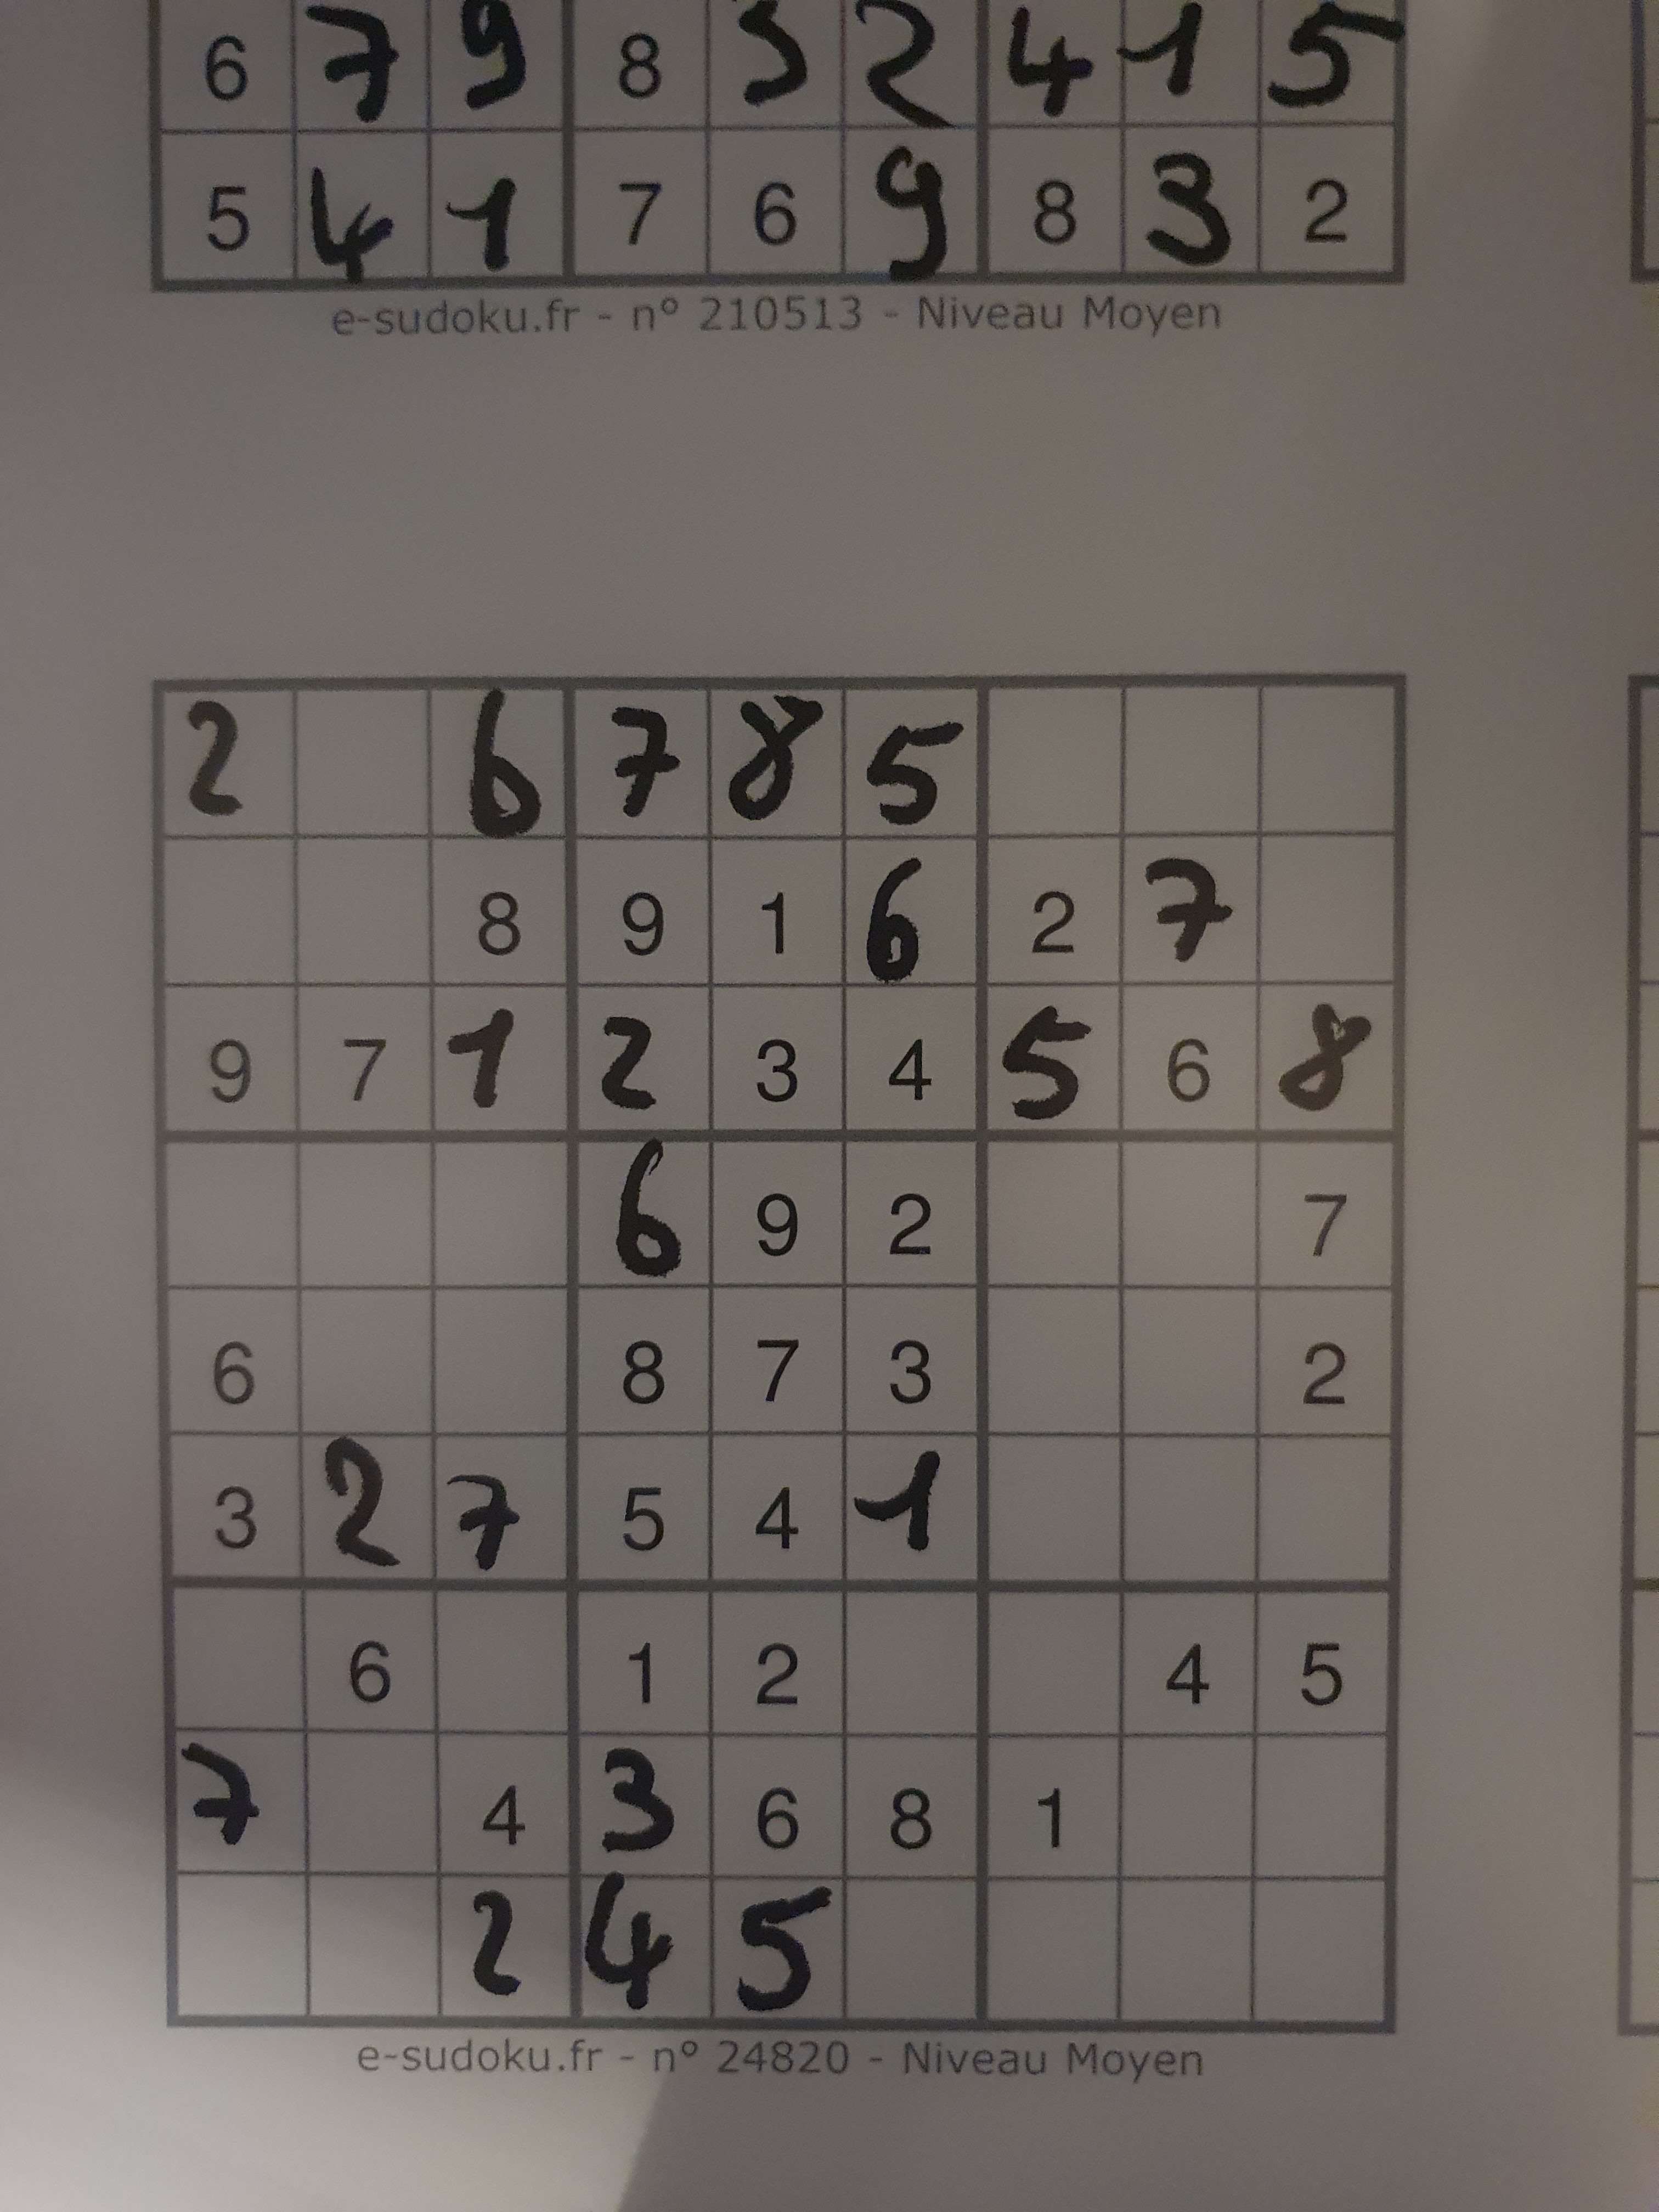 6 7 9 8 3 2 4 1 5
5 4 1 7 6 9 8 3 2
e-sudoku.fr - n° 210513 - Niveau Moyen
2 6 7 8 5
8 9 1 6 2 7
9 7 1 2 3 4 5 6 8
6 9 2 7
6 8 7 3 2
3 2 7 5 4 1
6 1 2 4 5
7 4 3 6 8 1
2 4 5
e-sudoku.fr - n° 24820 - Niveau Moyen